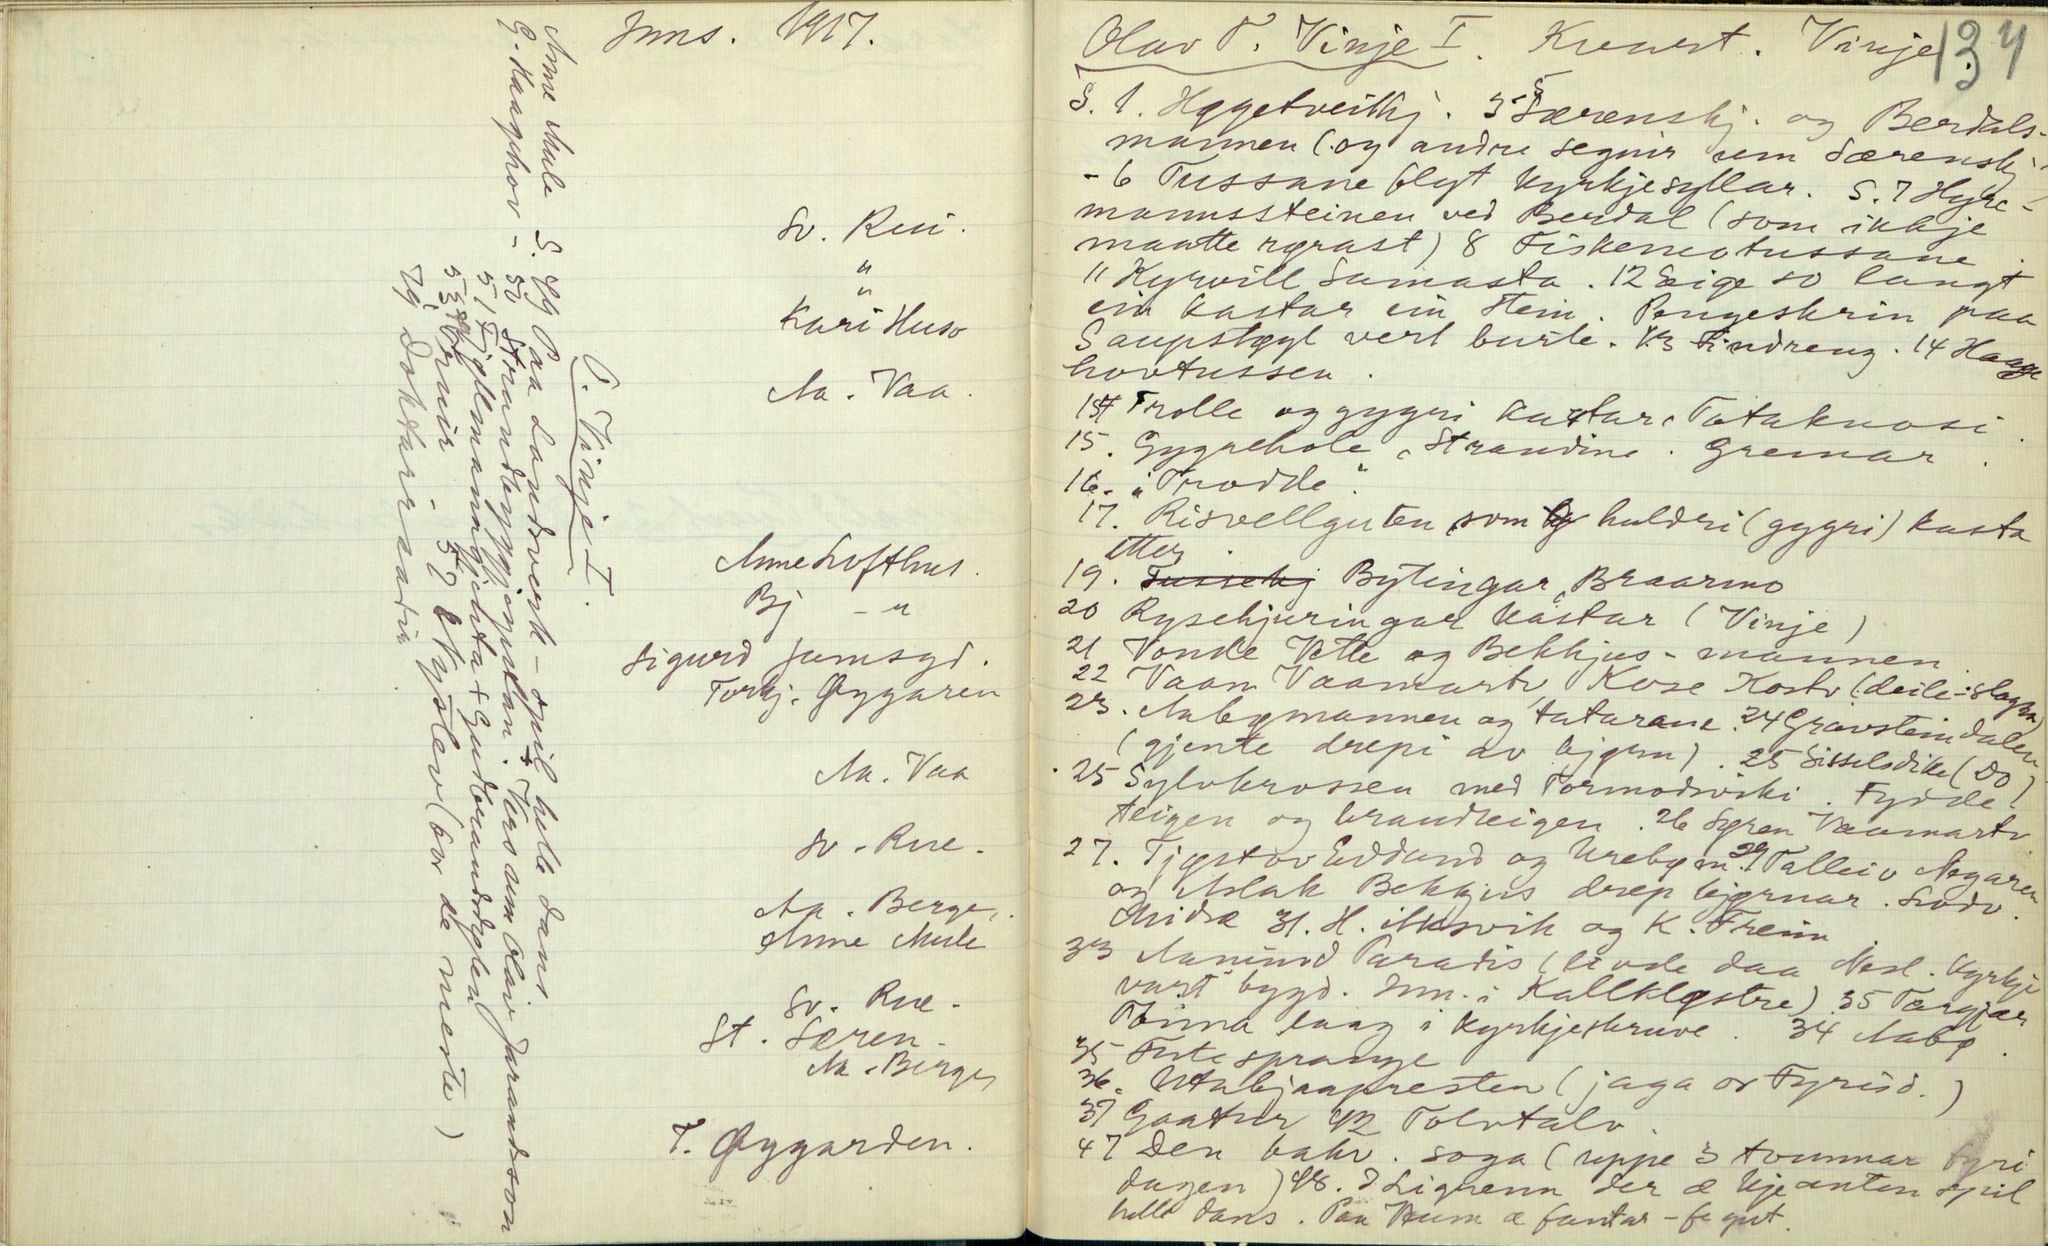 Inns. 1917.
Sv. Rui.
"
"
Kari Huso
Aa. Vaa.
Anne Lofthus.
Bj – "
Sigurd Jamsgd.
Torkj. Øygaren
Aa. Vaa
Sv. Rue.
Aa. Berge.
Anne Mule
Sv. Rue.
St. Særen.
Aa. Berge
T. Øygarden.
O. Vinje I.
Anne Mule S. 49 Paa Landsverk – spil helle dans
G. Kaasphov – 50 Strandbygg
51 Vers um Olav Jarandson
og Gudbrandsdølen
53 Ørnir 52 Nykølev (bor de meste)
Olav T. Vinje I. Kvart. Vinje. 134
S. 1. Høgetveitkj. 5 Særenskj. og Berdals-
mannen (og andre segnir um Særenskj.
- 6 Tussane flyt kyrkjesyllar. S. 7 Hyre-
mannssteinen ved Berdal (som ikkje
maatte røyrast) 8 Fiskemotussane.
11 Kyrvill Jamasta. 12 Eige so langt
ein kastar ein stein. Pengeskrin paa
Saupstøyl vert burte. 13 Findreng. 14 Hagge
hovtussen.
14 Trolle og gygri kastar. Totaknosi.
15. Gygrehole, Strandine. Gremar.
16. "Trodde".
17. Risvellguten, som huldri (gygri) kasta
etter.
19. Tussekj Bytingar, Braarmo
20 Rysehjuringar kastar (Vinje)
21 Vonde Vette og Bekkjus-mannen.
22 Vaan Vaamartv, Kose Kostv (deile-slagsm)
23. Aabømannen og tatarane. 24 Gravsteindalen
(gjente drepi av bjørn). 25 Sisselsdike (Do)
25 Sylvkrossen med Tormodsviki. Fydde-
teigen og brandteigen. 26 Søren Vaamartv
27. Tjøstov Eddand og Urebøm. 29 Talleiv Nøgaren
og Aslak Bekhus drep bjørnar. Lodv.
Midsæ 31. H. Aksvik og K. Treim.
33 Aamund Paradis (livde daa Nesl. kyrkje
vart bygd. Inn. i Kallkløstre). 35 Torgjær
Toinna laag i kyrkjeskruve. 34 Aabø.
35 Fute sprange
36. Utabjaapresten (jaga or Fyrisd.)
37 Gaatur 42 Tolvtalv.
47 Den bakv. soga (uppe 3 tvunnar fyri
dagen) 48. I Ligrenn der æ kje anten spil
helle dans. Paa Haum æ fantar – fø gut.